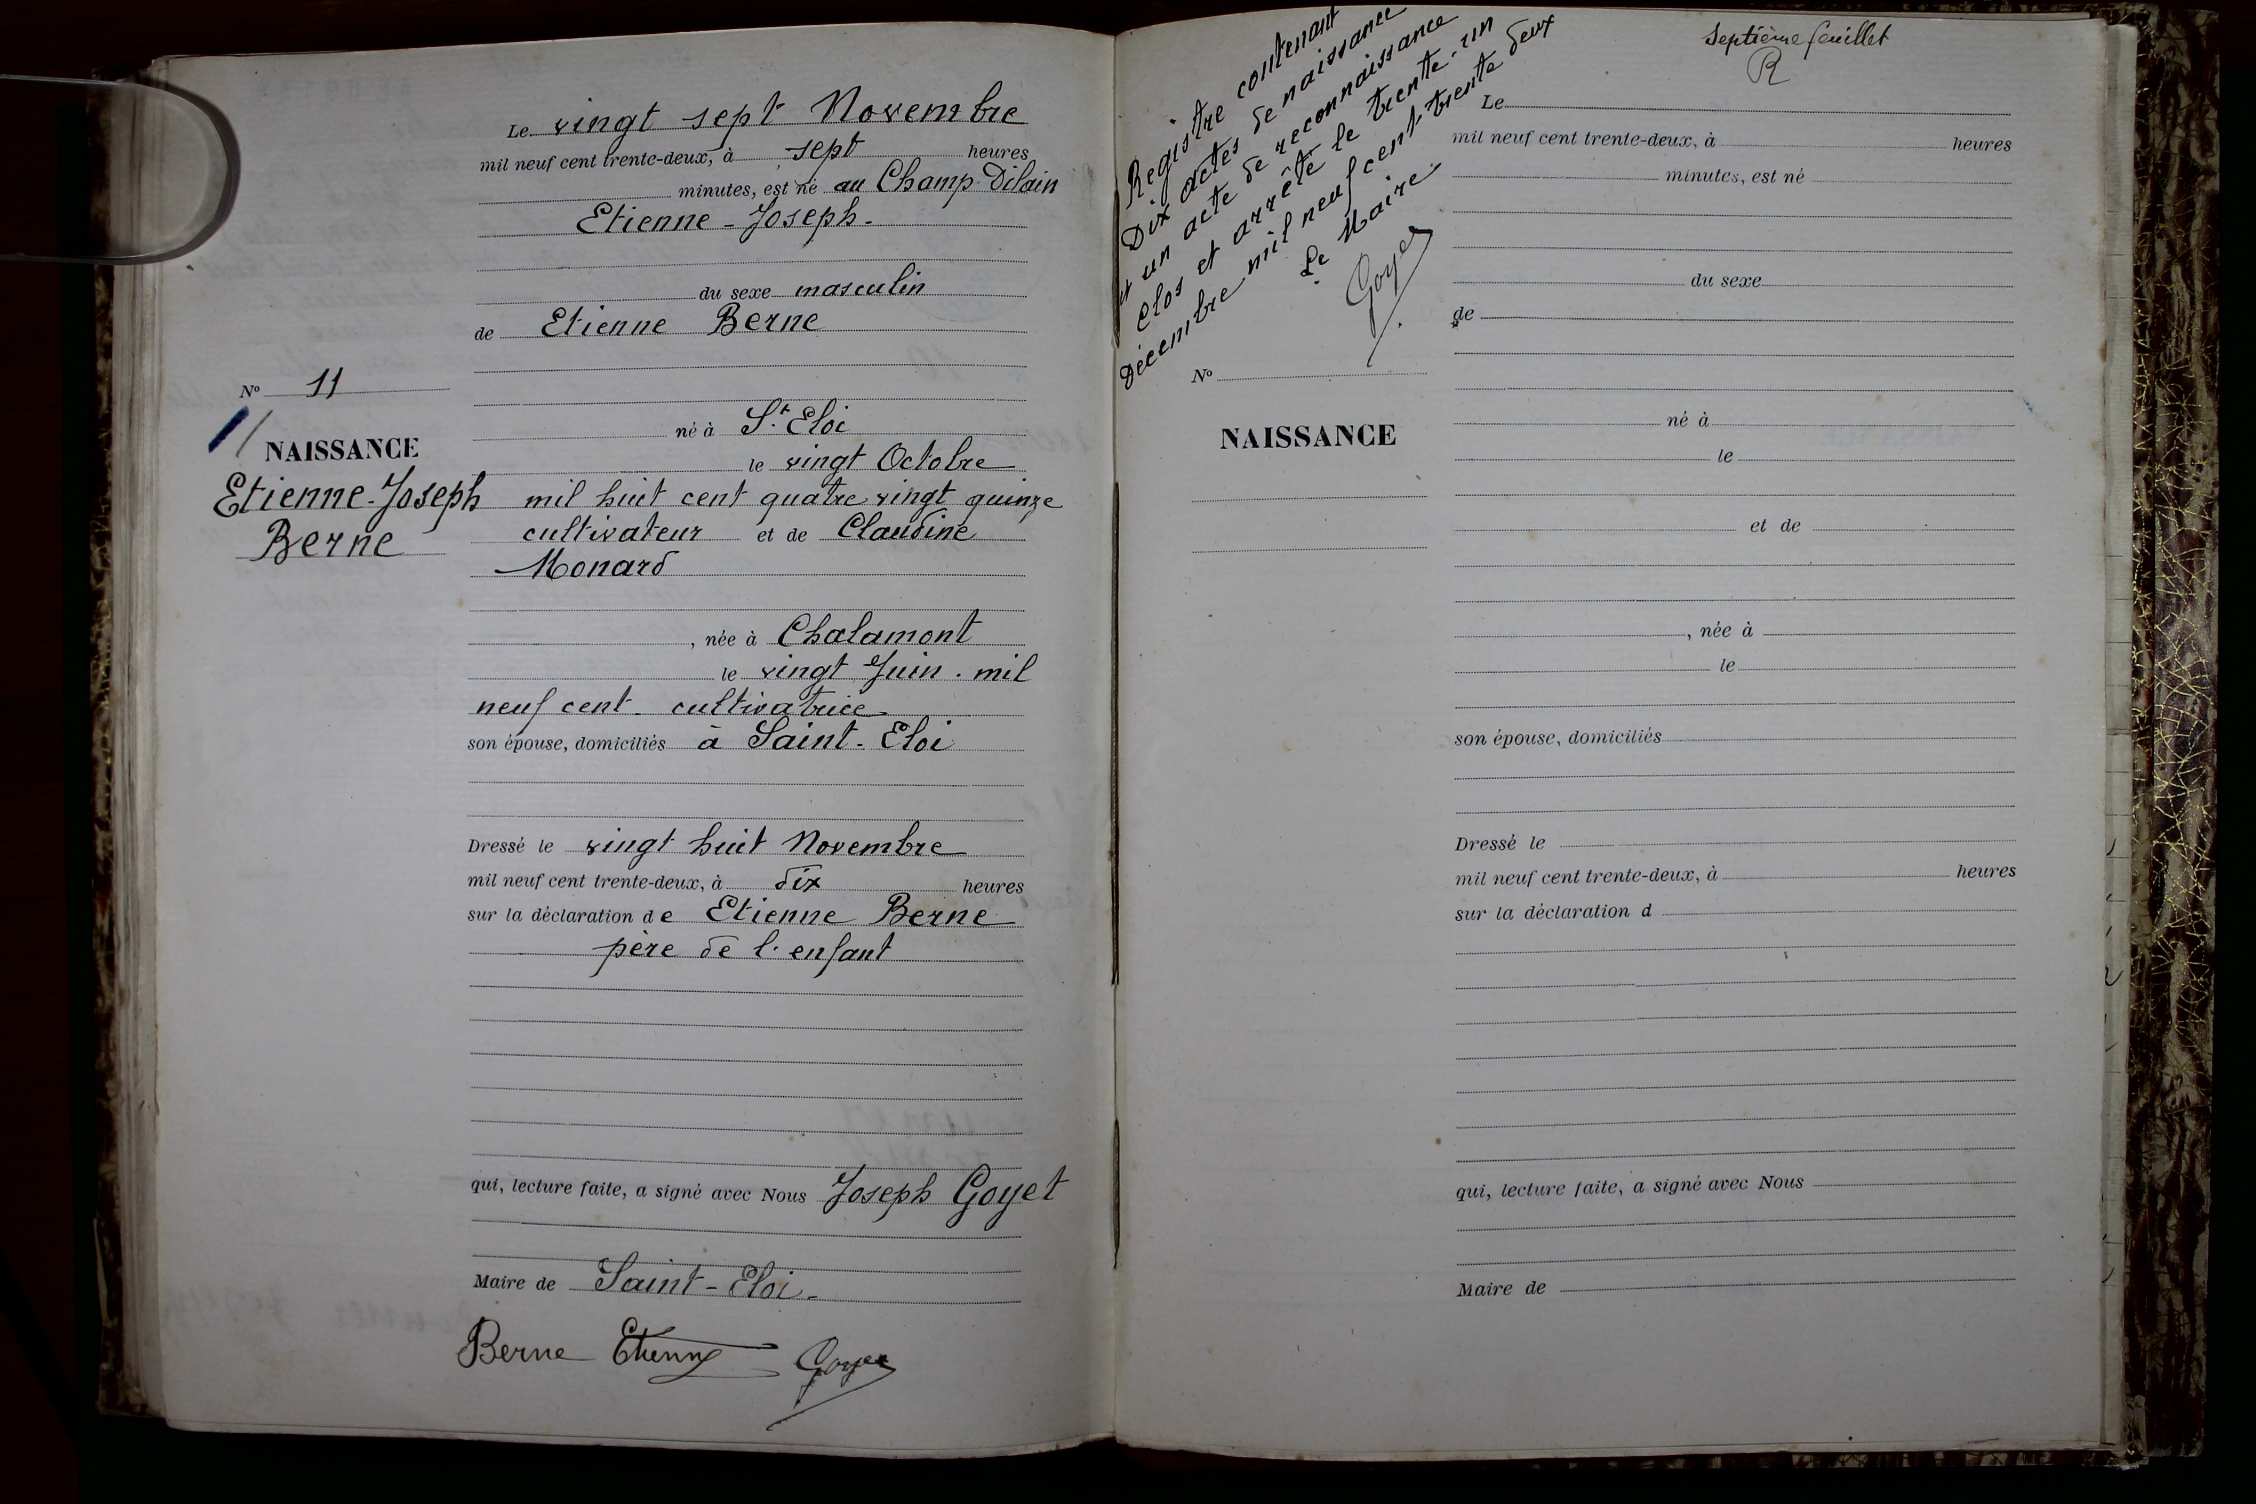 Le vingt sept Novembre
mil neuf cent trente-deux, à sept heures
minutes, est né au Champ Dilain
Etienne-Joseph-
du sexe masculin
de Etienne Berne
No 11
NAISSANCE
Etienne-Joseph
Berne
né à St. Eloi
le vingt Octobre
mil huit cent quatre vingt quinze
cultivateur et de Claudine
Monard
, née à Chalamont
le vingt Juin. mil
neuf cent - cultivatrice
son épouse, domiciliés à Saint-Eloi
Dressé le vingt huit Novembre
mil neuf cent trente-deux, à dix heures
sur la déclaration de Etienne Berne
père de l'enfant
qui, lecture faite, a signé avec Nous Joseph Goyet
Maire de Saint-Eloi-
Berne Etienne Goyet
Registre contenant
Dix actes de naissance
et un acte de reconnaissance
clos et arrêté le trente-un
Décembre mil neuf cent-trente deux
Le Maire
Goyet
Septième feuillet
R
Le
mil neuf cent trente-deux, à heures
minutes, est né
du sexe
de
No
NAISSANCE
né à
le
et de
, née à
le
son épouse, domiciliés
Dressé le
mil neuf cent trente-deux, à heures
sur la déclaration d
qui, lecture faite, a signé avec Nous
Maire de